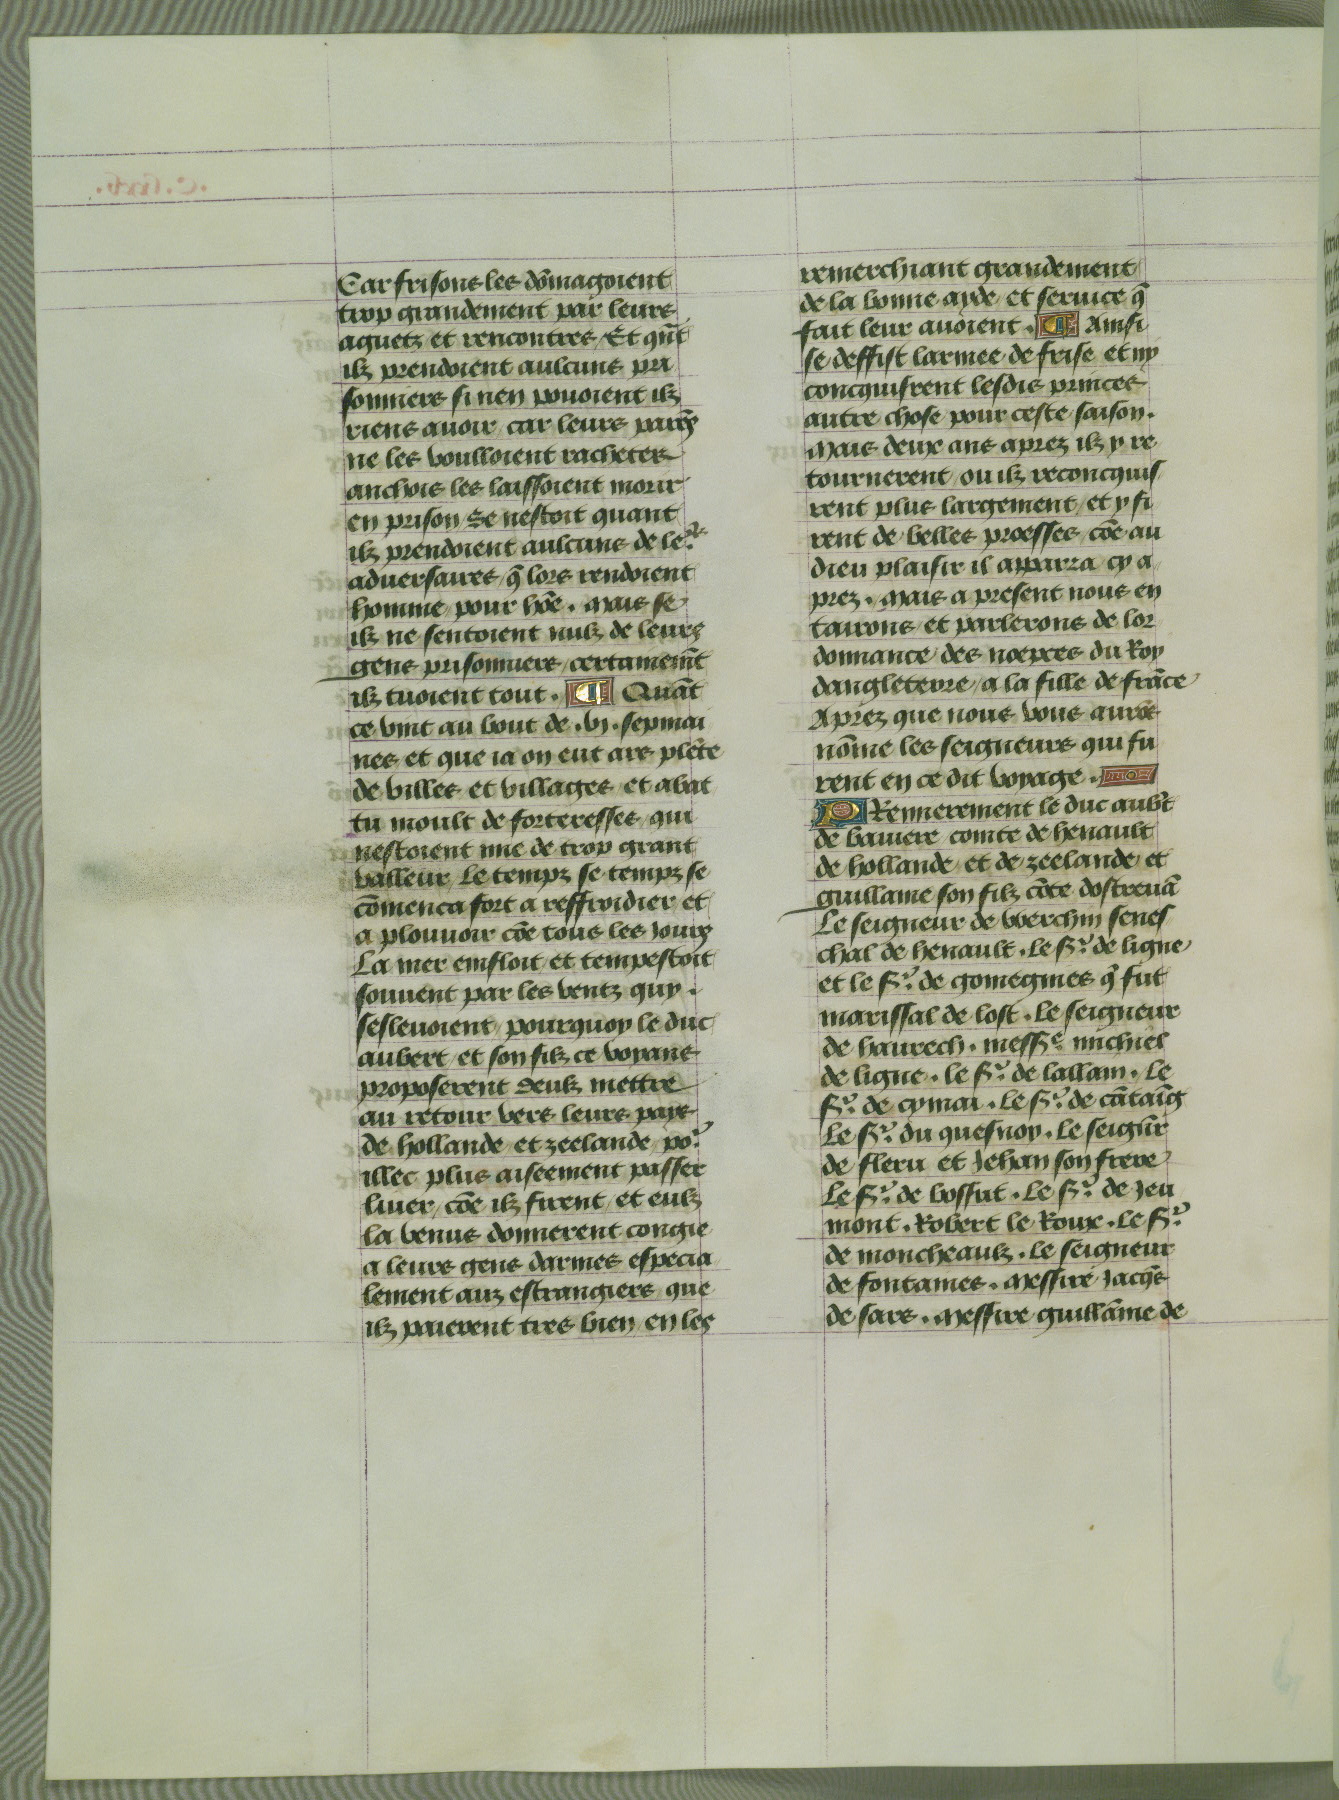 Car frisons les dōmagoient
trop grandement par leurs
aguetz et rencontres / Et qn̄t
ilz prendoient aulcuns pri
sonniers si nen pouoient ilz
riens auoir car leurs parēs
ne les voulloient racheter
anchois les laissoient morir
en prison / Se nestoit quant
ilz prendoient aulcuns de leʳˢ
aduersaires / q̄ lors rendoient
homme pour hōe . Mais se
ilz ne sentoient nulz de leurs
gens prisonniers / certainemt̄
ilz tuoient tout . ¶ Quāt
ce vint au bout de .vj. sepmai
nes et que ia on eut ars plēte
de villes et villages / et abat
tu moult de forteresses / qui
nestoient mie de trop grant
valleur Le tempz se tempz se
cōmenca fort a reffroidier et
a plouuoir cōe tous les Jours
La mer enfloit et tempestoit
souuent par les ventz quy .
sesleuoient / pourquoy le duc
aubert / et son filz ce voyans
proposerent deulz mettre
au retour vers leurs pays
de hollande et zeelande / poʳ
illec plus aiseement passer
liuer / cōe ilz firent / et eulz
la venus donnerent congie
a leurs gens darmes especia
lement auz estrangiers / que
ilz paierent tres bien / en les
remerchiant grandement
de la bonne ayde / et seruice q̄
fait leur auoient . ¶ Ainsi
se deffist larmee de frise / et ny
concquisrent lesdis princes
autre chose pour ceste saison .
Mais deux ans aprez ilz y re
tournerent / ou ilz reconcquis
rent plus largement / et y fi
rent de belles proesses / cōe au
dieu plaisir il apparra cy a
prez . Mais a present nous en
tairons / et parlerons de lor
donnance des noepces du Roy
dangleterre / a la fille de frāce
Aprez que nous vous aurōs
nōme les seigneurs qui fu
rent en ce dit voyage .
PRemierement le duc aubt̄
de bauiere comte de henault
de hollande / et de zeelande / et
guillame son filz cōte dostreuā
Le seigneur de werchin senes
chal de henault . le Sʳ de ligne
et le Sʳ de gomegnies q̄ fut
marissal de lost . Le seigneur
de haurech . messʳᵉ michiel
de ligne . le Sʳ de lallain . Le
Sʳ de cymai . Le Sʳ de cātaīg
Le Sʳ du quesnoy . Le seign̄r
de fleru et Jehan son frere
Le Sʳ de bossut . Le Sʳ de Jeu
mont . Robert le Roux . Le Sʳ
de moncheaulz . Le seigneur
de fontaines . Messire Jacq̄s
de sars . Messire guillāme de